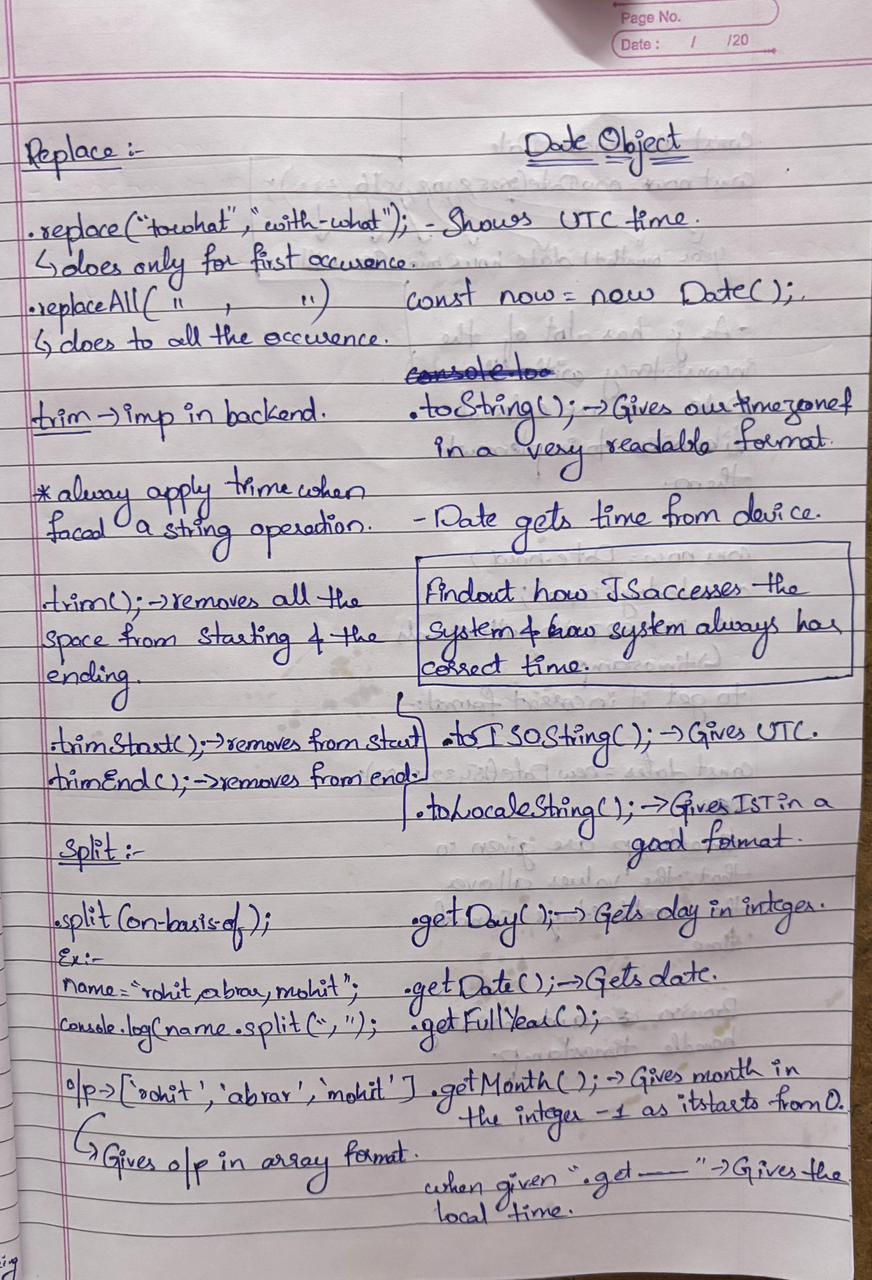 Page No.
Date : / /20
Replace :-
.replace("towhat","with-what");
↳ does only for first occurence.
.replaceAll( " , " )
↳ does to all the occurence.
trim → imp in backend.
* alway apply trime when
faced a string operation.
trim(); → removes all the
space from starting & the
ending.
.trimStart(); → removes from start
trimEnd(); → removes from end.
Split :-
.split(on-basis-of);
Ex:-
name = "rohit,abrar,mohit";
console.log(name.split(",");
o/p → ['rohit', 'abrar', 'mohit']
↳ Gives o/p in array format.
Date Object
- Shows UTC time.
const now = new Date();
console.lo
.toString(); → Gives our timezone
in a very readable format.
- Date gets time from device.
Findout how JS accesses the
system & how system always has
correct time.
.toISOString(); → Gives UTC.
.toLocaleString(); → Gives IST in a
good format.
.getDay(); → Gets day in integer.
.getDate(); → Gets date.
.getFullYear();
.getMonth(); → Gives month in
the integer -1 as itstarts from 0.
when given ".get——" → Gives the
local time.